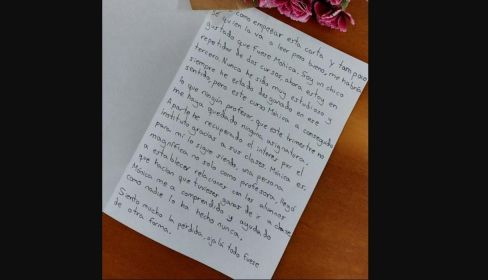 como empezar esta carta y tampoco
se quien la va a leer pero bueno, me habría
gustado que fuese Mónica. Soy un chico
repetidor de dos cursos, ahora estoy en
tercero. Nunca he sido muy estudioso y
siempre he estado desganado en ese
sentido, pero este curso Mónica a conseguido
lo que ningún profesor, que este trimestre no
me haya quedado ninguna asignatura.
Aparte he recuperado el interés por el
instituto gracias a sus clases. Mónica es,
para mí lo sigue siendo, una persona
magnífica no solo como profesora, llegó
a establecer relaciones con los alumnos
que hacían que tuvieses ganas de ir a clase
Mónica me a comprendido y ayudado
como nadie lo ha hecho nunca.
Siento mucho la perdida, ojalá todo fuese
de otra forma.